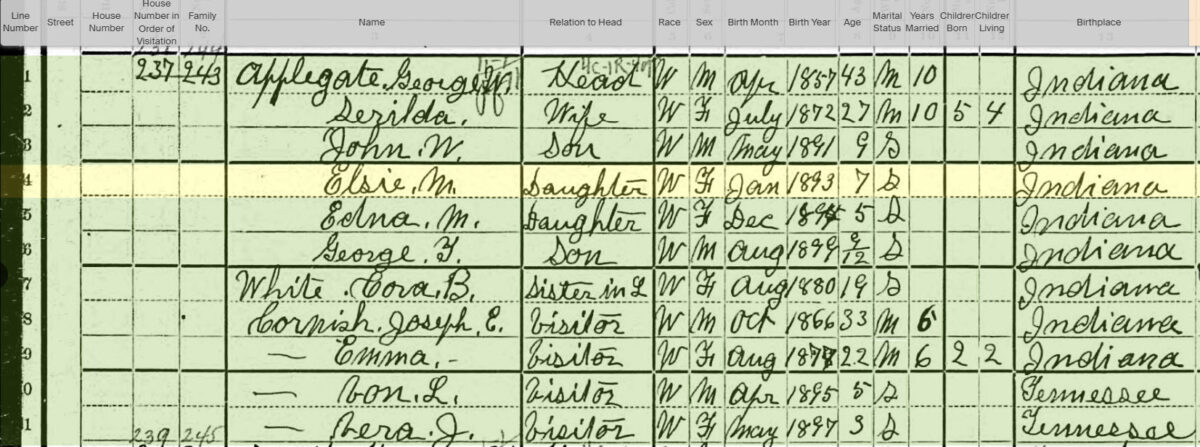 Line Number Street House Number House Number in Order of Visitation Family No. Name Relation to Head Race Sex Birth Month Birth Year Age Marital Status Years Married Children Born Children Living Birthplace
1 237 243 Applegate, George W. Head W M Apr 1857 43 M 10 Indiana
2 Serilda. Wife W F July 1872 27 M 10 5 4 Indiana
3 John. W. Son W M May 1891 9 S Indiana
4 Elsie. M. Daughter W F Jan 1893 7 S Indiana
5 Edna. M. Daughter W F Dec 1894 5 S Indiana
6 George. F. Son W M Aug 1899 9/12 S Indiana
7 White. Cora. B. Sister in L W F Aug 1880 19 S Indiana
8 Cornish. Joseph. E. Visitor W M Oct 1866 33 M 6 Indiana
9 — Emma. - Visitor W F Aug 1877 22 M 6 2 2 Indiana
10 — Von. L. Visitor W M Apr 1895 5 S Tennessee
11 239 245 — Vera. J. Visitor W F May 1897 3 S Tennessee